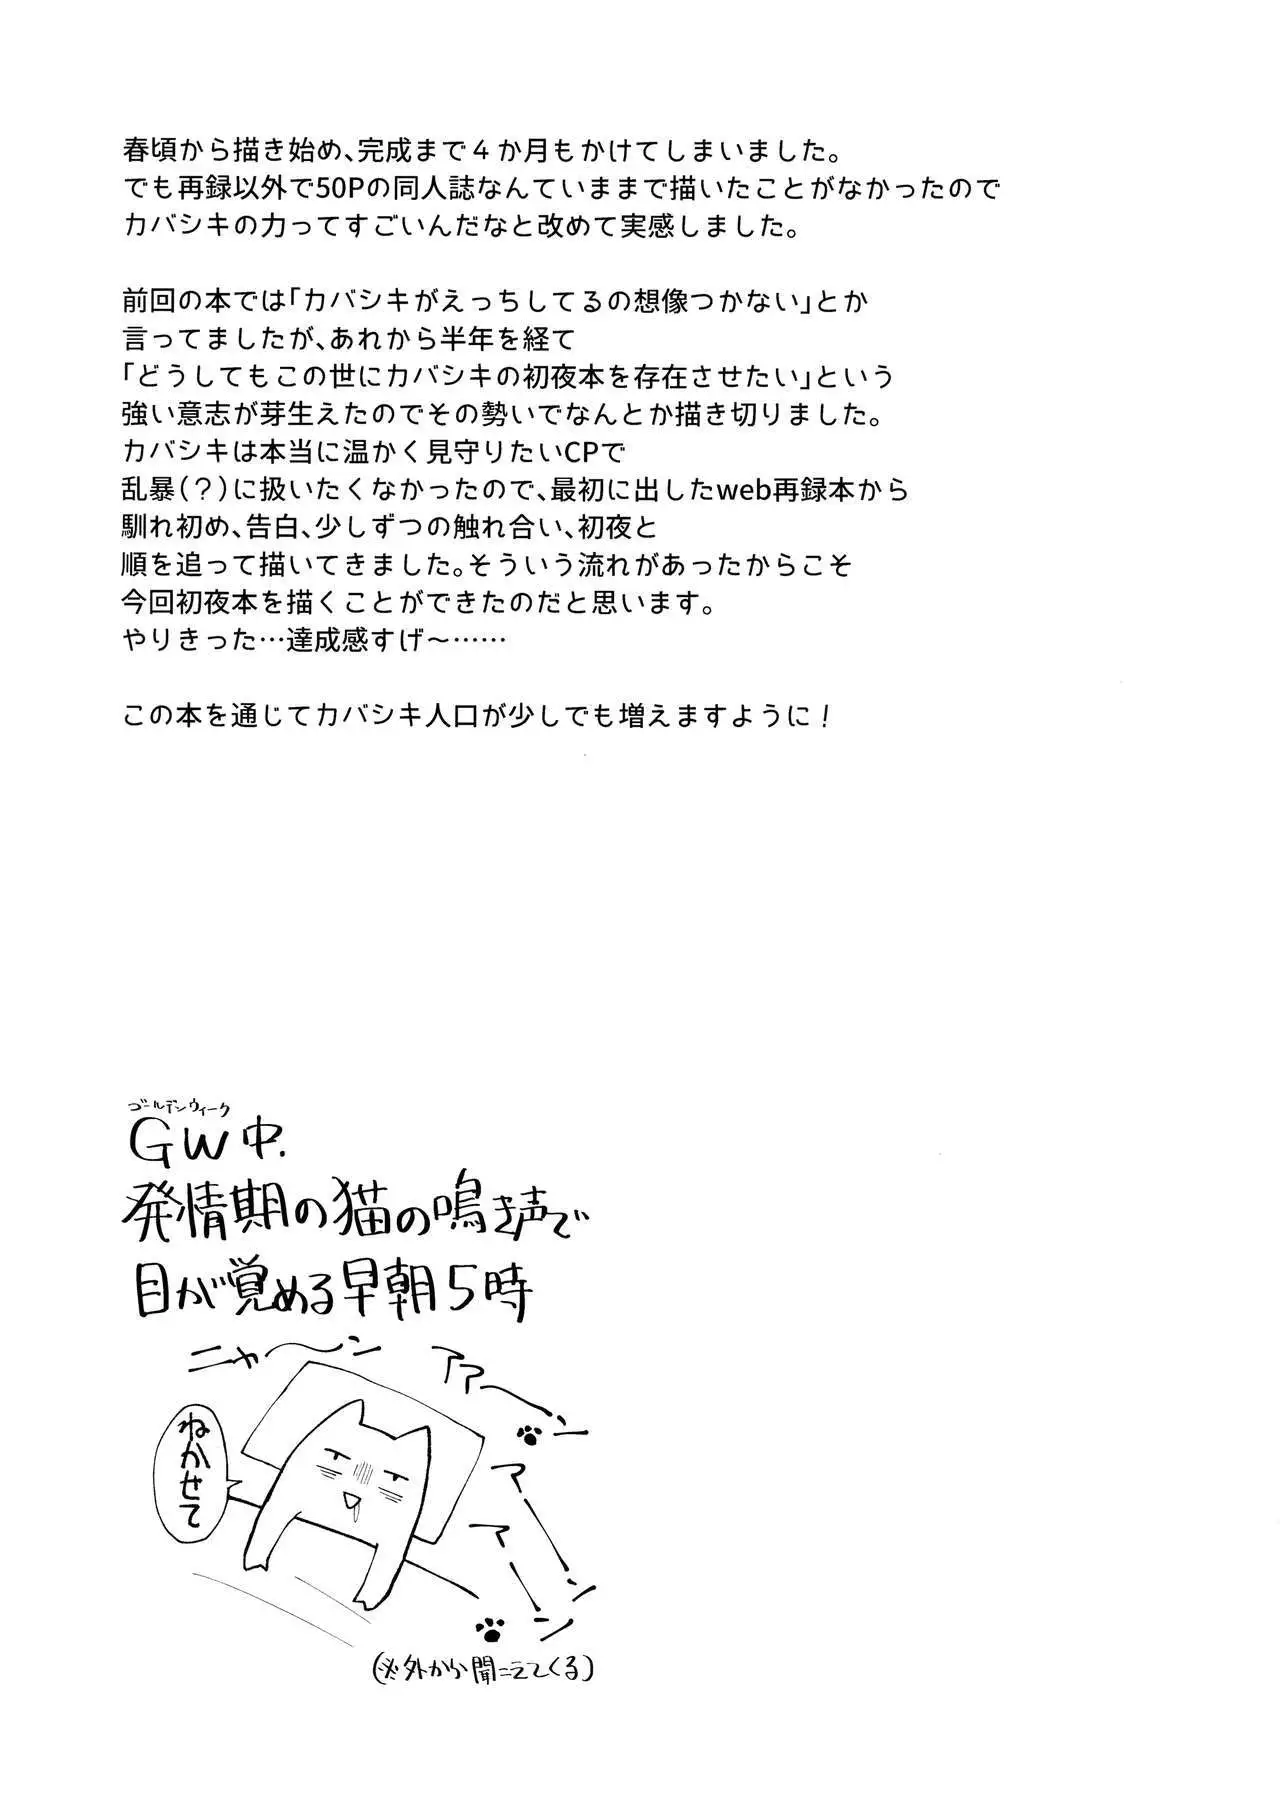 春頃から描き始め、完成まで４か月もかけてしまいました。
でも再録以外で50Pの同人誌なんていままで描いたことがなかったので
カバシキの力ってすごいんだなと改めて実感しました。
前回の本では「カバシキがえっちしてるの想像つかない」とか
言ってましたが、あれから半年を経て
「どうしてもこの世にカバシキの初夜本を存在させたい」という
強い意志が芽生えたのでその勢いでなんとか描き切りました。
カバシキは本当に温かく見守りたいCPで
乱暴（？）に扱いたくなかったので、最初に出したweb再録本から
馴れ初め、告白、少しずつの触れ合い、初夜と
順を追って描いてきました。そういう流れがあったからこそ
今回初夜本を描くことができたのだと思います。
やりきった…達成感すげ～……
この本を通じてカバシキ人口が少しでも増えますように！
ゴールデンウィーク
GW中.
発情期の猫の鳴き声で
目が覚める早朝5時
ニャ～ン
アァ～ン
ねかせて
マーーン
マーーン
(※外から聞こえてくる)